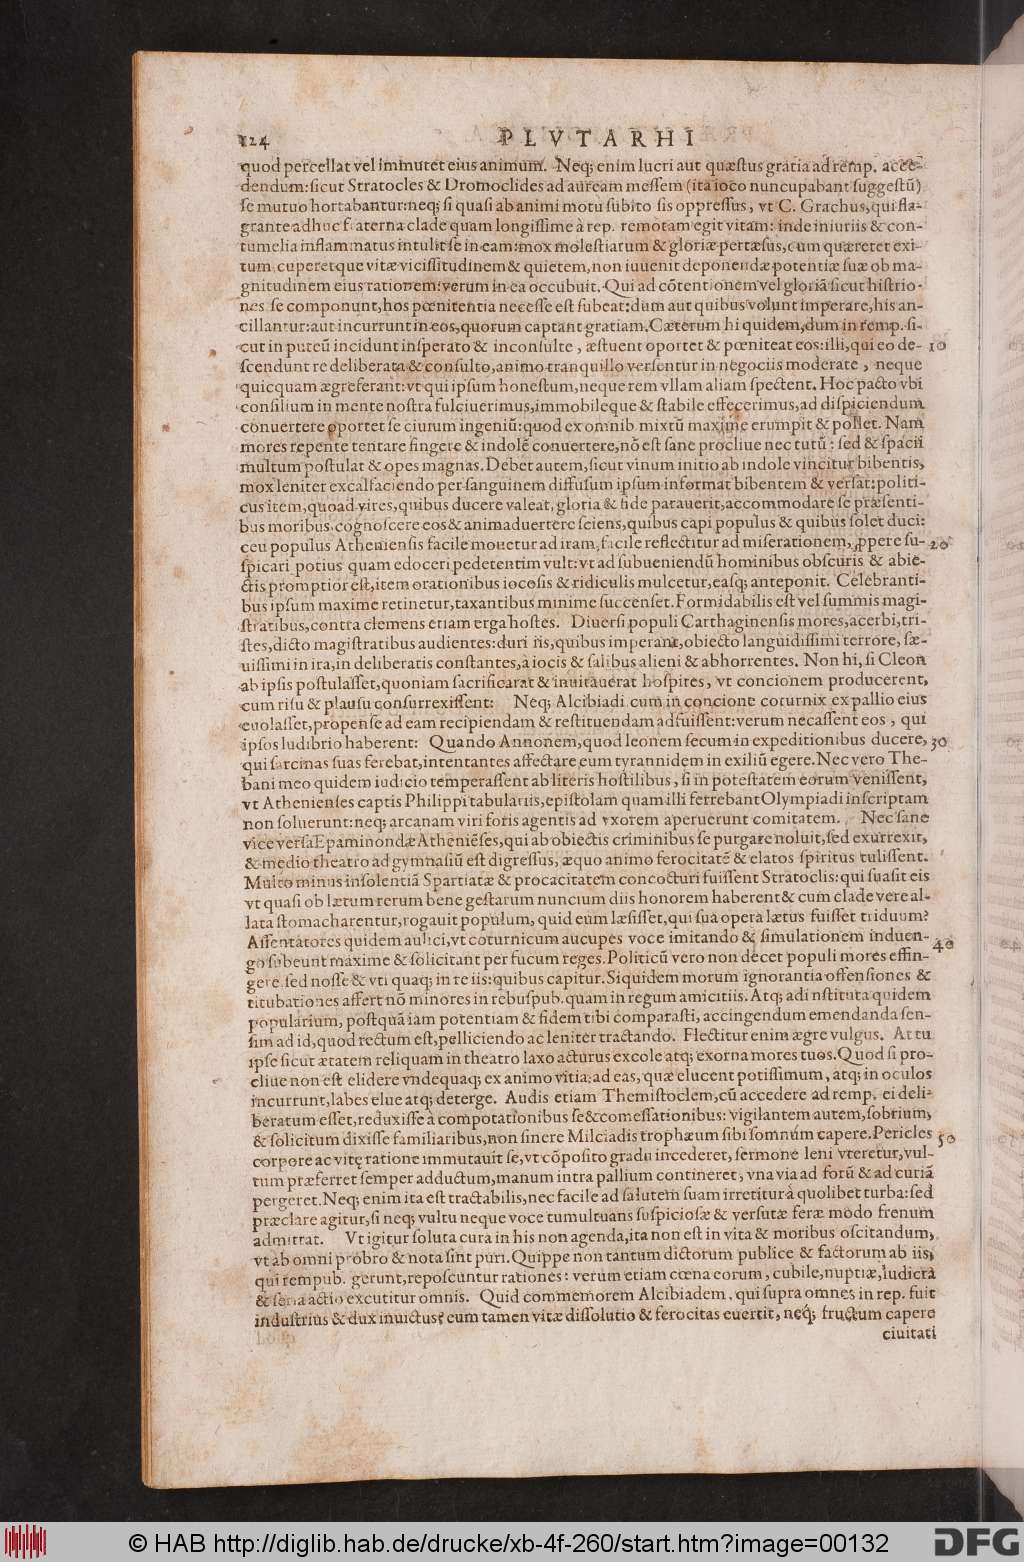 124 PLVTARHI
quod percellat vel imminutet eius animum. Neq; enim lucri aut quæstus gratia ad remp. acce-
dendum: sicut Stratocles & Dromoclides ad auream messem (ita ioco nuncupabant suggestū)
se mutuo hortabantur: neq; si quasi ab animi motu subito sis oppressus, vt C. Grachus, qui fla-
grante adhuc fraterna clade quam longissime à rep. remotam egit vitam: inde iniuriis & con-
tumelia inflammatus intulit se in eam: mox molestiarum & gloriæ pertæsus, cum quæreret exi-
tum cuperetque vitæ vicissitudinem & quietem, non iuuenit deponendæ potentiæ suæ ob ma-
gnitudinem eius rationem: verum in ea occubuit. Qui ad cōtentionem vel gloriā sicut histrio-
nes se componunt, hos pœnitentia necesse est subeat: dum aut quibus volunt imperare, his an-
cillantur: aut incurrunt in eos, quorum captant gratiam. Cæterum hi quidem, dum in remp. si-
cut in puteū incidunt insperato & inconsulte, æstuent oportet & pœniteat eos: illi, qui eo de- 10
scendunt re deliberata & consulto, animo tranquillo versentur in negociis moderate, neque
quicquam ægreferant: vt qui ipsum honestum, neque rem vllam aliam spectent. Hoc pacto vbi
consilium in mente nostra fulciuerimus, immobileque & stabile effecerimus, ad dispiciendum
conuertere oportet se ciuium ingeniū: quod ex omnib. mixtū maxime erumpit & pollet. Nam
mores repente tentare fingere & indolē conuertere, nō est sane procliue nec tutū: sed & spacii
multum postulat & opes magnas. Debet autem, sicut vinum initio ab indole vincitur bibentis,
mox leniter excalfaciendo per sanguinem diffusum ipsum informat bibentem & versat: politi-
cus item, quoad vires, quibus ducere valeat, gloria & fide parauerit, accommodare se præsenti-
bus moribus, cognoscere eos & animaduertere sciens, quibus capi populus & quibus solet duci:
ceu populus Atheniensis facile mouetur ad iram, facile reflectitur ad miserationem, ꝓpere su- 20
spicari potius quam edoceri pedetentim vult: vt ad subueniendū hominibus obscuris & abie-
ctis promptior est, item orationibus iocosis & ridiculis mulcetur, easq; anteponit. Celebranti-
bus ipsum maxime retinetur, taxantibus minime succenset. Formidabilis est vel summis magi-
stratibus, contra clemens etiam erga hostes. Diuersi populi Carthaginensis mores, acerbi, tri-
stes, dicto magistratibus audientes: duri iis, quibus imperant, obiecto languidissimi terrore, sæ-
uissimi in ira, in deliberatis constantes, à iocis & salibus alieni & abhorrentes. Non hi, si Cleon
ab ipsis postulasset, quoniam sacrificarat & inuitauerat hospites, vt concionem producerent,
cum risu & plausu consurrexissent: Neq; Alcibiadi cum in concione coturnix ex pallio eius
euolasset, propense ad eam recipiendam & restituendam adfuissent: verum necassent eos, qui
ipsos ludibrio haberent: Quando Annonem, quod leonem secum in expeditionibus ducere, 30
qui sarcinas suas ferebat, intentantes affectare eum tyrannidem in exiliū egere. Nec vero The-
bani meo quidem iudicio temperassent ab literis hostilibus, si in potestatem eorum venissent,
vt Athenienses captis Philippi tabulariis, epistolam quam illi ferrebant Olympiadi inscriptam
non soluerunt: neq; arcanam viri foris agentis ad vxorem aperuerunt comitatem. Nec sane
vice versa Epaminondæ Atheniēses, qui ab obiectis criminibus se purgare noluit, sed exurrexit,
& medio theatro ad gymnasiū est digressus, æquo animo ferocitatē & elatos spiritus tulissent.
Multo minus insolentiā Spartiatæ & procacitatem concocturi fuissent Stratoclis: qui suasit eis
vt quasi ob lætum rerum bene gestarum nuncium diis honorem haberent & cum clade vere al-
lata stomacharentur, rogauit populum, quid eum læsisset, qui sua opera lætus fuisset triduum?
Assentatores quidem aulici, vt coturnicum aucupes voce imitando & simulationem induen- 40
go subeunt maxime & solicitant per fucum reges. Politicū vero non decet populi mores effin-
gere. sed nosse & vti quaq; in re iis: quibus capitur. Siquidem morum ignorantia offensiones &
titubationes affert nō minores in rebuspub. quam in regum amicitiis. Atq; ad instituta quidem
popularium, postquā iam potentiam & fidem tibi comparasti, accingendum emendanda sen-
sim ad id, quod rectum est, pelliciendo ac leniter tractando. Flectitur enim ægre vulgus. At tu
ipse sicut ætatem reliquam in theatro laxo acturus excole atq; exorna mores tuos. Quod si pro-
cliue non est elidere vndequaq; ex animo vitia: ad eas, quæ elucent potissimum, atq; in oculos
incurrunt, labes elue atq; deterge. Audis etiam Themistoclem, cū accedere ad remp. ei deli-
beratum esset, reduxisse à compotationibus se & comessationibus: vigilantem autem, sobrium,
& solicitum dixisse familiaribus, non sinere Milciadis trophæum sibi somnum capere. Pericles 50
corpore ac vitę ratione immutauit se, vt cōposito gradu incederet, sermone leni vteretur, vul-
tum præferret semper adductum, manum intra pallium contineret, vna via ad forū & ad curiā
pergeret. Neq; enim ita est tractabilis, nec facile ad salutem suam irretitur à quolibet turba: sed
præclare agitur, si neq; vultu neque voce tumultuans suspiciosæ & versutæ feræ modo frenum
admittat. Vt igitur soluta cura in his non agenda, ita non est in vita & moribus oscitandum,
vt ab omni probro & nota sint puri. Quippe non tantum dictorum publice & factorum ab iis,
qui rempub. gerunt, reposcuntur rationes: verum etiam cœna eorum, cubile, nuptiæ, ludicra
& seria actio excutitur omnis. Quid commemorem Alcibiadem, qui supra omnes in rep. fuit
industrius & dux inuictus: eum tamen vitæ dissolutio & ferocitas euertit, neq; fructum capere
ciuitati
© HAB http://diglib.hab.de/drucke/xb-4f-260/start.htm?image=00132
DFG